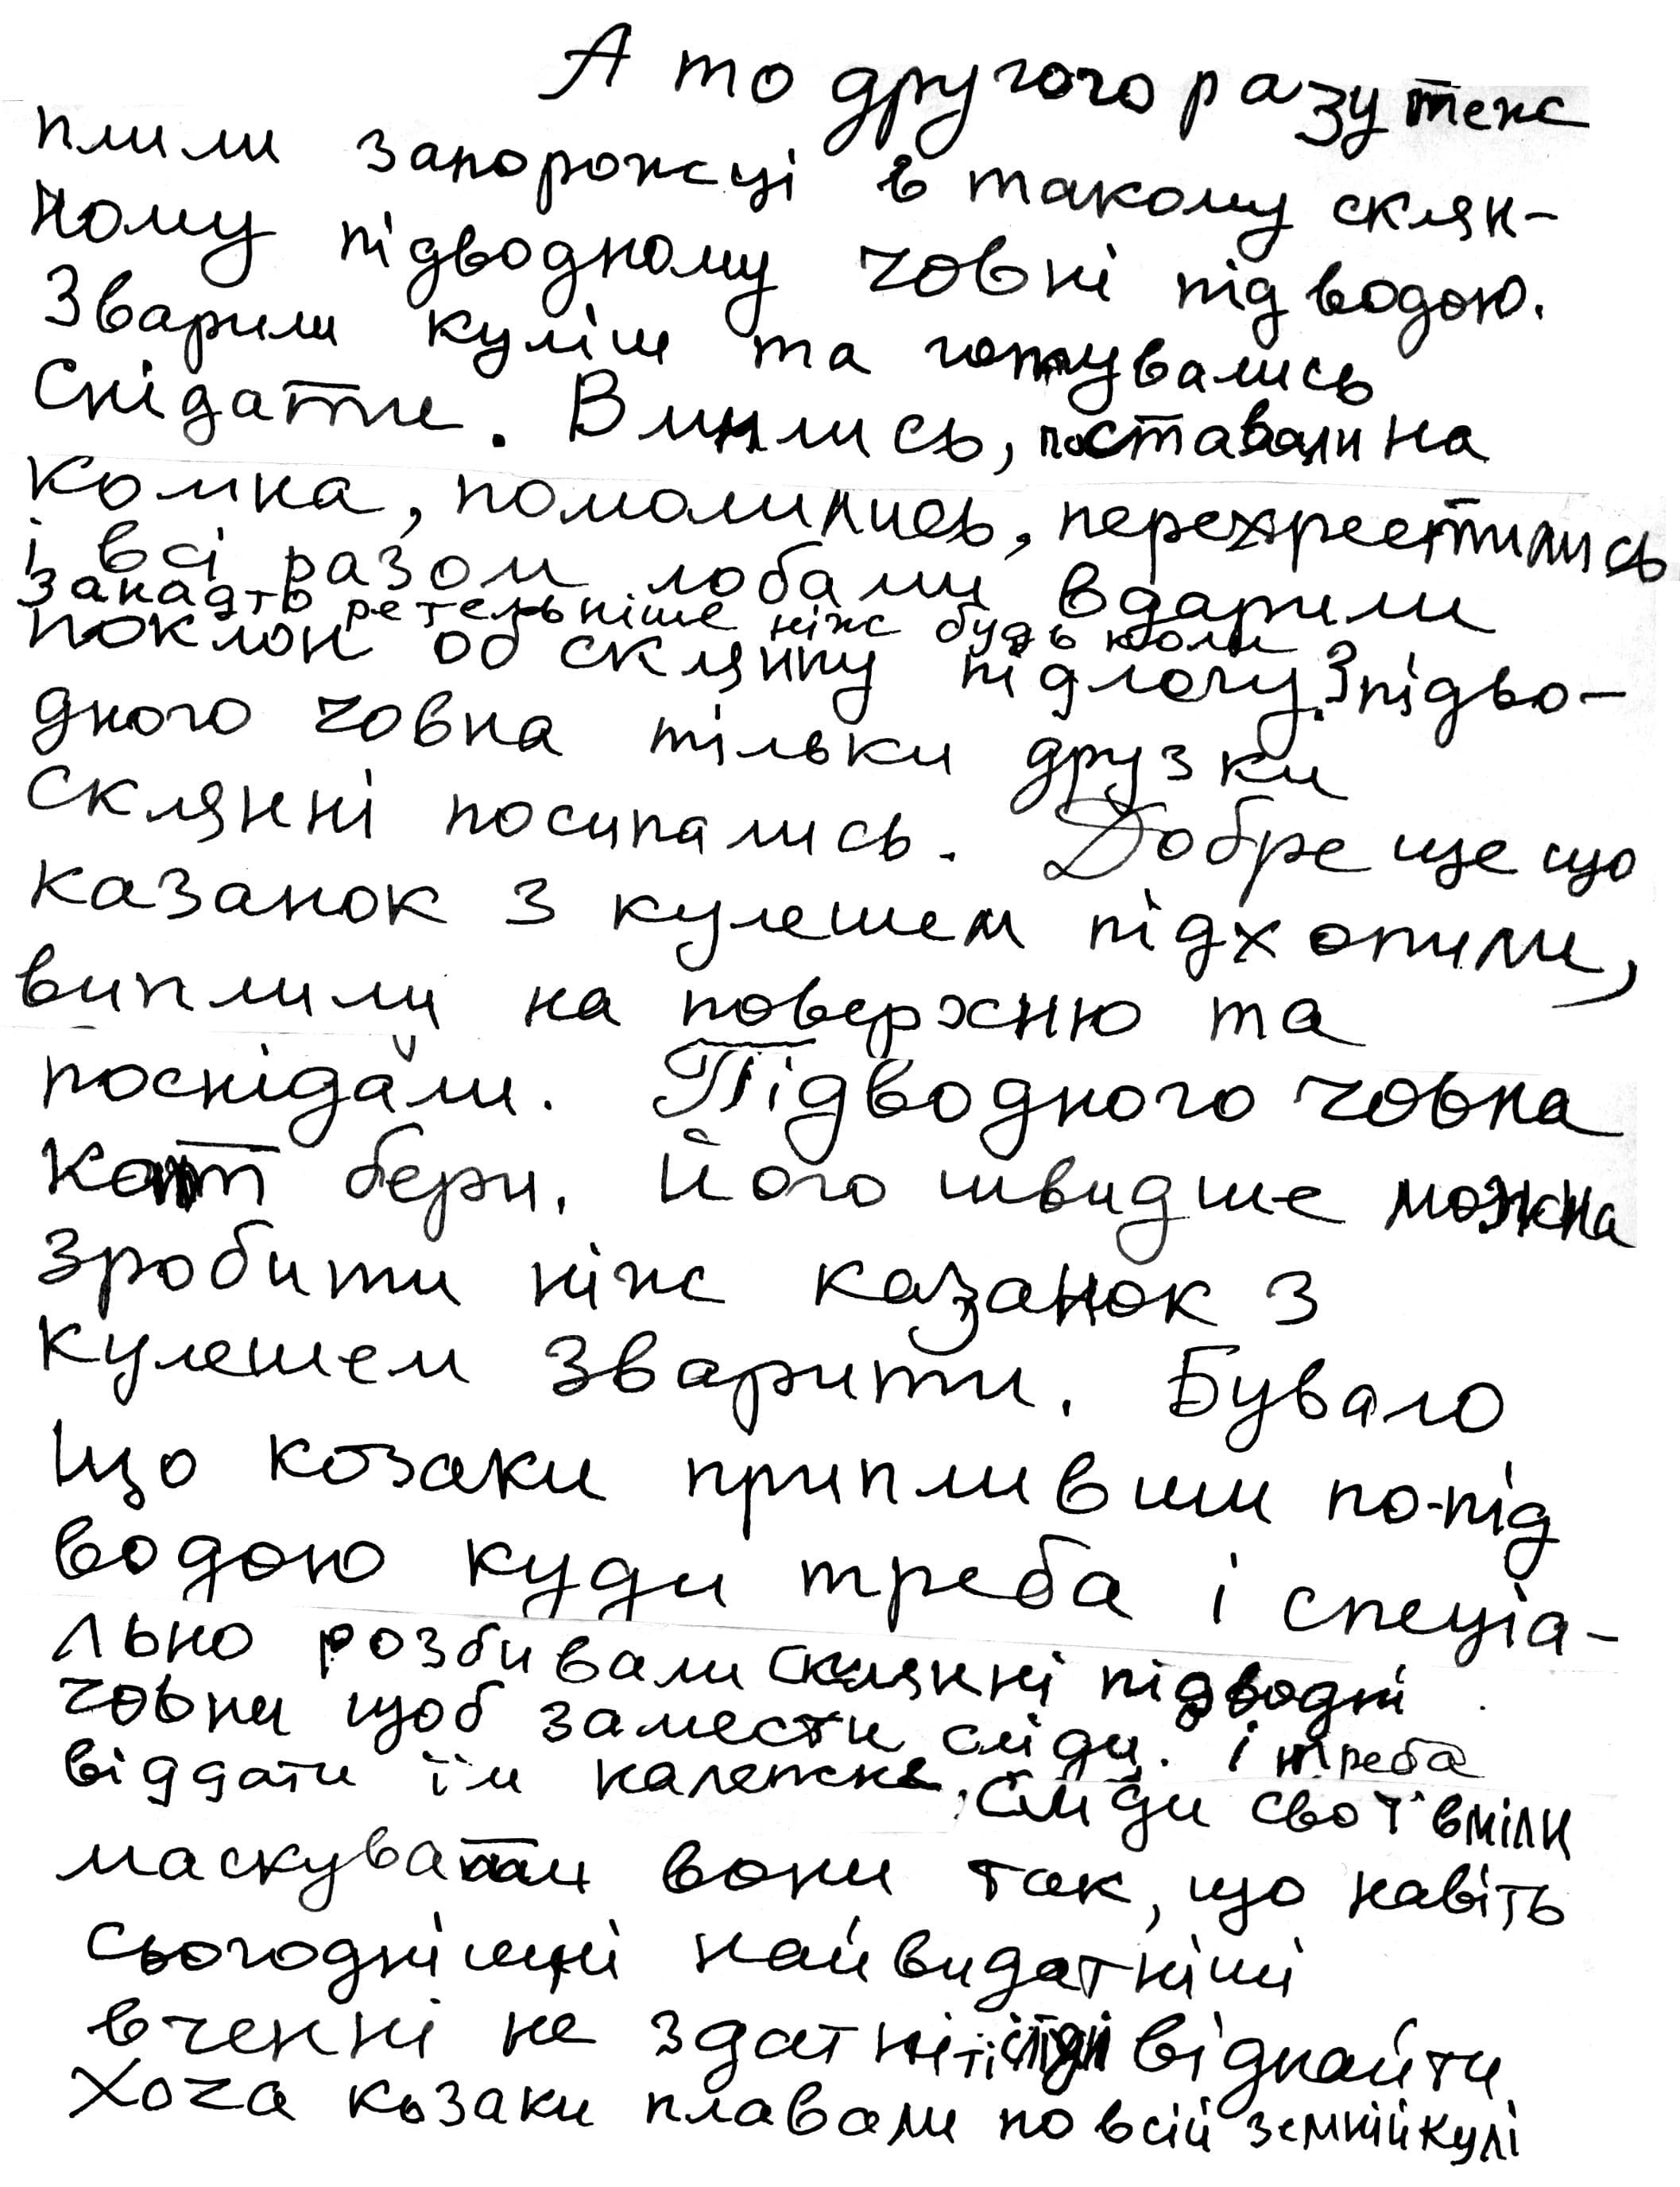 А то другого разу теж
плили запорожці в такому склян-
ному підводному човні під водою.
Зварили куліш та готувались
снідати. Вмились, поставали на
коліна, помолились, перехрестились
і всі разом лобами вдарили
занадто ретельніше ніж будь коли
поклон об склянну підлогу. З підво-
дного човна тільки друзки
склянні посипались. Добре ще що
казанок з кулешем підхопили,
виплили на поверхню та
поснідали. Підводного човна
кат бери. Його швидше можна
зробити ніж казанок з
кулешем зварити. Бувало
що козаки припливши по-під
водою куди треба і спеціа-
льно розбивали склянні підводні
човни щоб замести сліди. і треба
віддати їм належне, Сліди свої вміли
маскувати вони так, що навіть
сьогоднішні найвидатніші
вченні не здатні ті сліди віднайти
Хоча козаки плавали по всій земній кулі